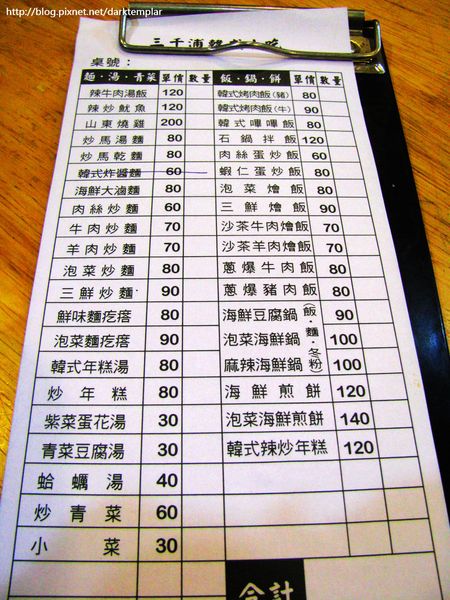 http://blog.pixnet.net/darktemplar
三千浦韓式小吃
桌號：
麵·湯·青菜 單價 數量 飯·鍋·餅 單價 數量
辣牛肉湯飯 120 韓式烤肉飯(豬) 80
辣炒魷魚 120 韓式烤肉飯(牛) 90
山東燒雞 200 韓式嗶嗶飯 80
炒馬湯麵 80 石鍋拌飯 120
炒馬乾麵 80 肉絲蛋炒飯 60
韓式炸醬麵 60 蝦仁蛋炒飯 80
海鮮大滷麵 80 泡菜燴飯 80
肉絲炒麵 60 三鮮燴飯 90
牛肉炒麵 70 沙茶牛肉燴飯 70
羊肉炒麵 70 沙茶羊肉燴飯 70
泡菜炒麵 80 蔥爆牛肉飯 80
三鮮炒麵 90 蔥爆豬肉飯 80
鮮味麵疙瘩 80 海鮮豆腐鍋(飯·麵·冬粉) 90
泡菜麵疙瘩 90 泡菜海鮮鍋 100
韓式年糕湯 80 麻辣海鮮鍋 100
炒年糕 80 海鮮煎餅 120
紫菜蛋花湯 30 泡菜海鮮煎餅 140
青菜豆腐湯 30 韓式辣炒年糕 120
蛤蠣湯 40
炒青菜 60
小菜 30
合計